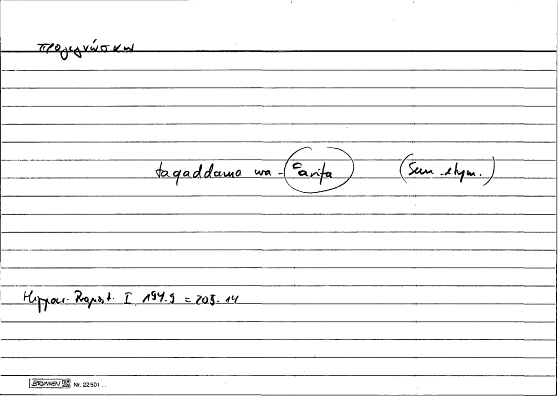 προγιγνώσκων
taqaddama wa - ʿarifa (Sem. etym.)
Hippocr. Prognost. I, 194.9 = 203.14
BRUNNEN Nr. 22501 ..